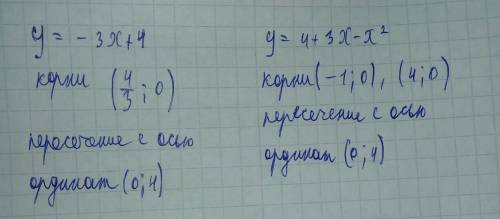 y = - 3x + 4
корни (4/3 ; 0)
пересечение с осью
ординат (0; 4)
y = 4 + 3x - x²
корни (-1; 0), (4; 0)
пересечение с осью
ординат (0; 4)